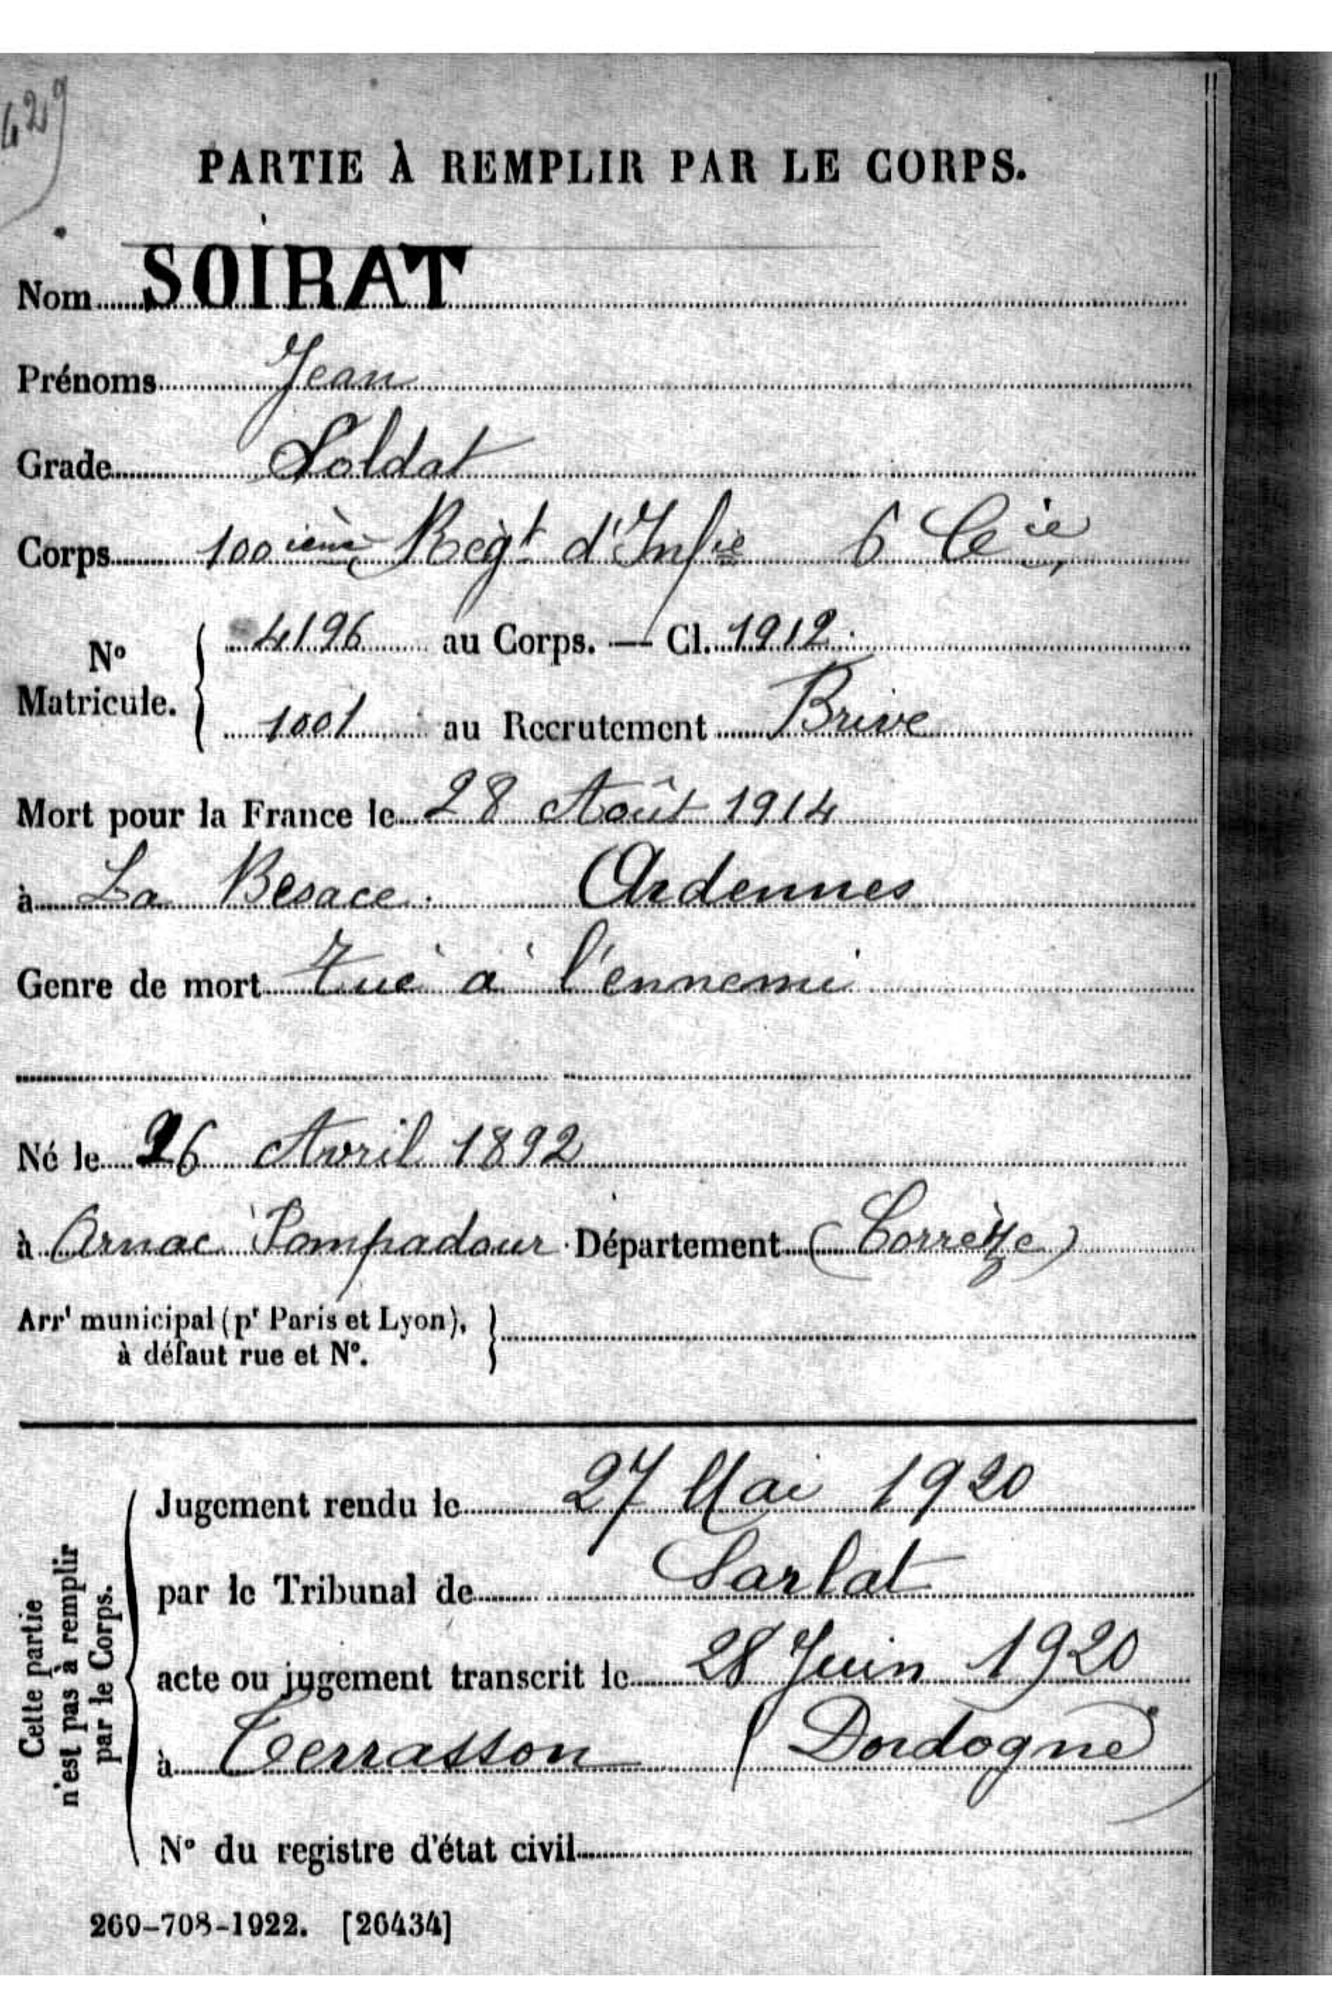 429
PARTIE À REMPLIR PAR LE CORPS.
Nom SOIRAT
Prénoms Jean
Grade Soldat
Corps 100ième Règt d'Infie 6 Cie
N° Matricule. 4196 au Corps. — Cl. 1912.
1001 au Recrutement Brive
Mort pour la France le 28 Août 1914
à La Besace. Ardennes
Genre de mort Tué à l'ennemi
Né le 26 Avril 1892
à Arnac Pompadour Département (Corrèze)
Arrt municipal (pr Paris et Lyon),
à défaut rue et N°.
Cette partie
n'est pas à remplir
par le Corps.
Jugement rendu le 27 Mai 1920
par le Tribunal de Sarlat
acte ou jugement transcrit le 28 Juin 1920
à Terrasson (Dordogne)
N° du registre d'état civil
269-708-1922. [26434]